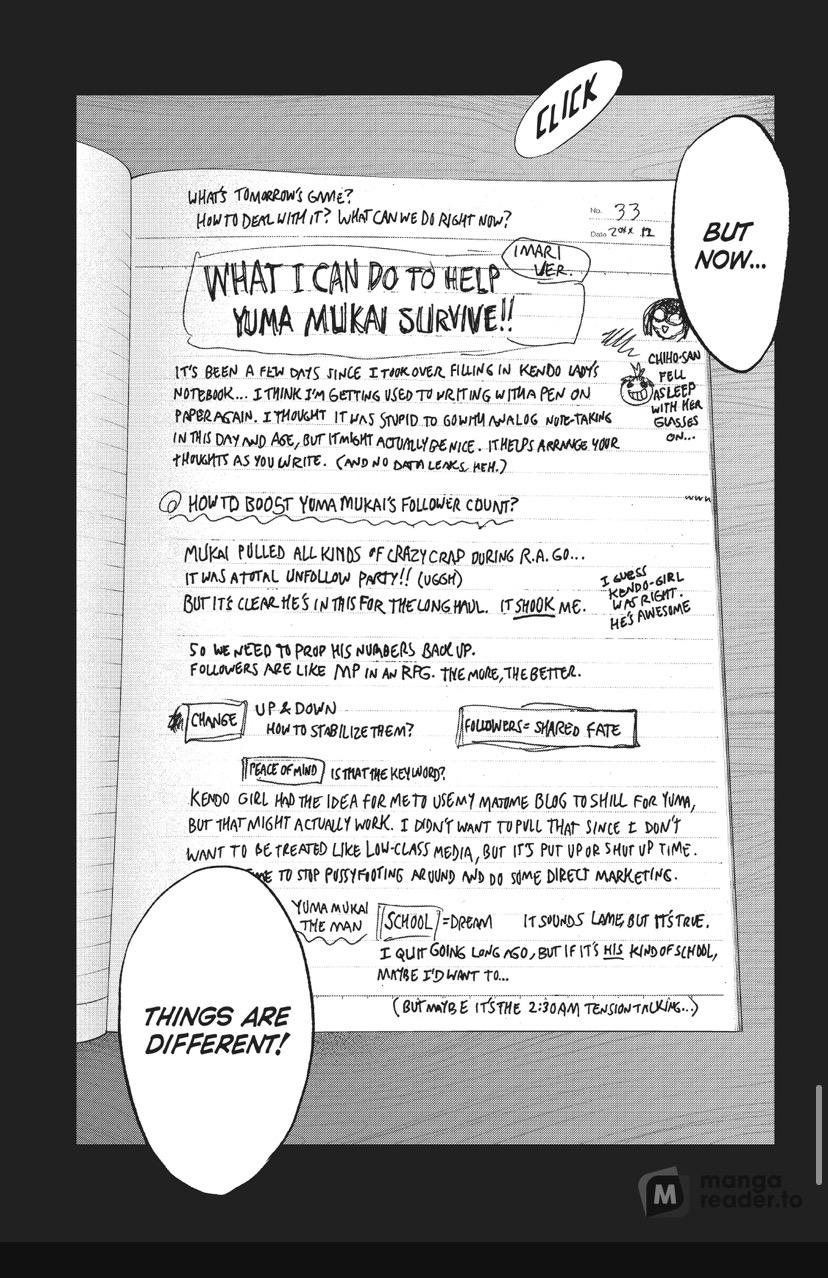 CLICK
BUT
NOW...
WHAT'S TOMORROW'S GAME?
HOW TO DEAL WITH IT? WHAT CAN WE DO RIGHT NOW?
No. 33
Date 20XX 12
IMARI
VER.
WHAT I CAN DO TO HELP
YUMA MUKAI SURVIVE!!
CHIHO-SAN
FELL
ASLEEP
WITH HER
GLASSES
ON...
IT'S BEEN A FEW DAYS SINCE I TOOK OVER FILLING IN KENDO LADY'S
NOTEBOOK... I THINK I'M GETTING USED TO WRITING WITH A PEN ON
PAPER AGAIN. I THOUGHT IT WAS STUPID TO GO WITH ANALOG NOTE-TAKING
IN THIS DAY AND AGE, BUT IT MIGHT ACTUALLY BE NICE. IT HELPS ARRANGE YOUR
THOUGHTS AS YOU WRITE. (AND NO DATA LEAKS, HEH.)
HOW TO BOOST YUMA MUKAI'S FOLLOWER COUNT?
MUKAI PULLED ALL KINDS OF CRAZY CRAP DURING R.A. GO...
IT WAS A TOTAL UNFOLLOW PARTY!! (UGGH)
BUT IT'S CLEAR HE'S IN THIS FOR THE LONG HAUL. IT SHOOK ME.
I GUESS
KENDO-GIRL
WAS RIGHT.
HE'S AWESOME
SO WE NEED TO PROP HIS NUMBERS BACK UP.
FOLLOWERS ARE LIKE MP IN AN RPG. THE MORE, THE BETTER.
CHANGE UP & DOWN
HOW TO STABILIZE THEM?
FOLLOWERS = SHARED FATE
PEACE OF MIND IS THAT THE KEYWORD?
KENDO GIRL HAD THE IDEA FOR ME TO USE MY MATOME BLOG TO SHILL FOR YUMA,
BUT THAT MIGHT ACTUALLY WORK. I DIDN'T WANT TO PULL THAT SINCE I DON'T
WANT TO BE TREATED LIKE LOW-CLASS MEDIA, BUT IT'S PUT UP OR SHUT UP TIME.
TO STOP PUSSYFOOTING AROUND AND DO SOME DIRECT MARKETING.
YUMA MUKAI
THE MAN
SCHOOL = DREAM IT SOUNDS LAME, BUT IT'S TRUE.
I QUIT GOING LONG AGO, BUT IF IT'S HIS KIND OF SCHOOL,
MAYBE I'D WANT TO...
(BUT MAYBE IT'S THE 2:30AM TENSION TALKING...)
THINGS ARE
DIFFERENT!
M manga
reader.to